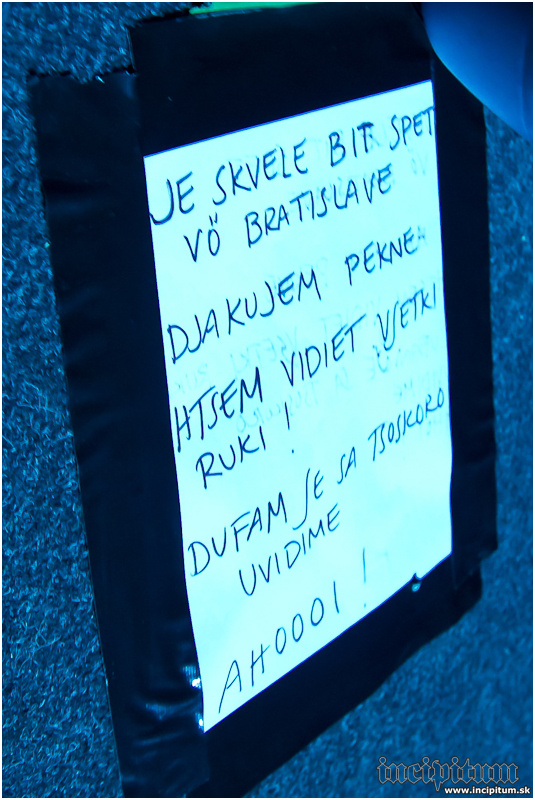 JE SKVELE BIT SPET
VÖ BRATISLAVE
DJAKUJEM PEKNE
HTSEM VIDIET VJETKI
RUKI !
DUFAM JE SA TSOSKORO
UVIDIME
AHOOOI !
incipitum
www.incipitum.sk